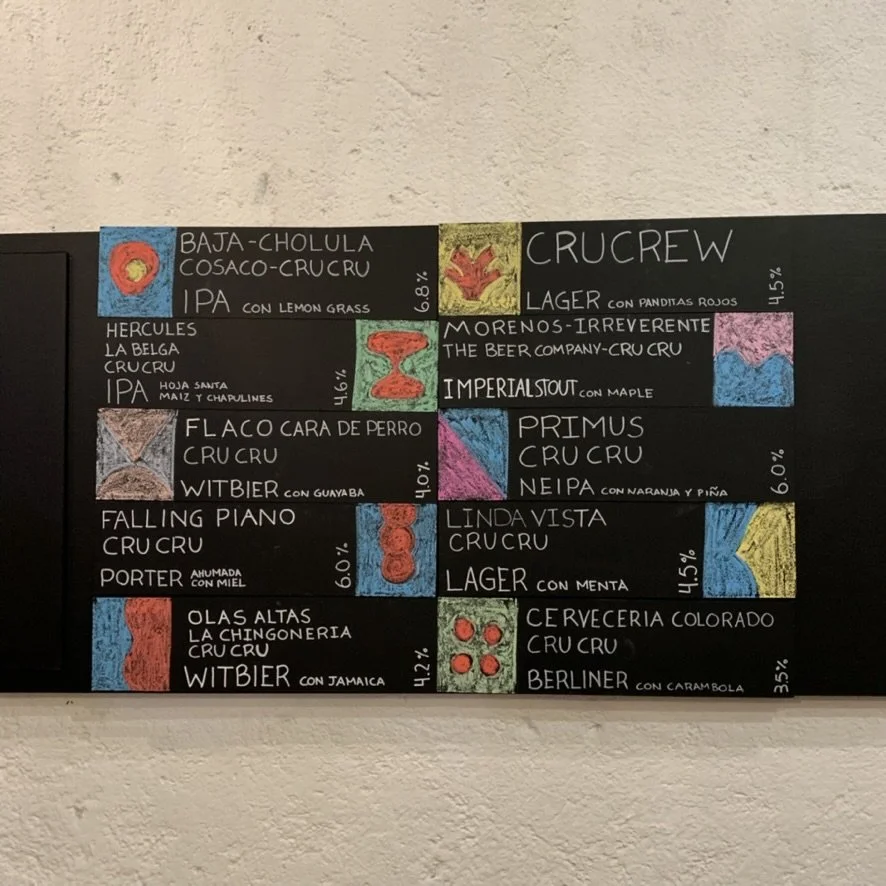 BAJA-CHOLULA
COSACO-CRUCRU
IPA CON LEMON GRASS
6.8%
HERCULES
LA BELGA
CRUCRU
IPA HOJA SANTA
MAIZ Y CHAPULINES
4.6%
FLACO CARA DE PERRO
CRU CRU
WITBIER CON GUAYABA
4.0%
FALLING PIANO
CRU CRU
PORTER AHUMADA
CON MIEL
6.0%
OLAS ALTAS
LA CHINGONERIA
CRU CRU
WITBIER CON JAMAICA
4.2%
CRUCREW
LAGER CON PANDITAS ROJOS
4.5%
MORENOS-IRREVERENTE
THE BEER COMPANY-CRU CRU
IMPERIAL STOUT CON MAPLE
PRIMUS
CRU CRU
NEIPA CON NARANJA Y PIÑA
6.0%
LINDA VISTA
CRUCRU
LAGER CON MENTA
4.5%
CERVECERIA COLORADO
CRU CRU
BERLINER CON CARAMBOLA
3.5%